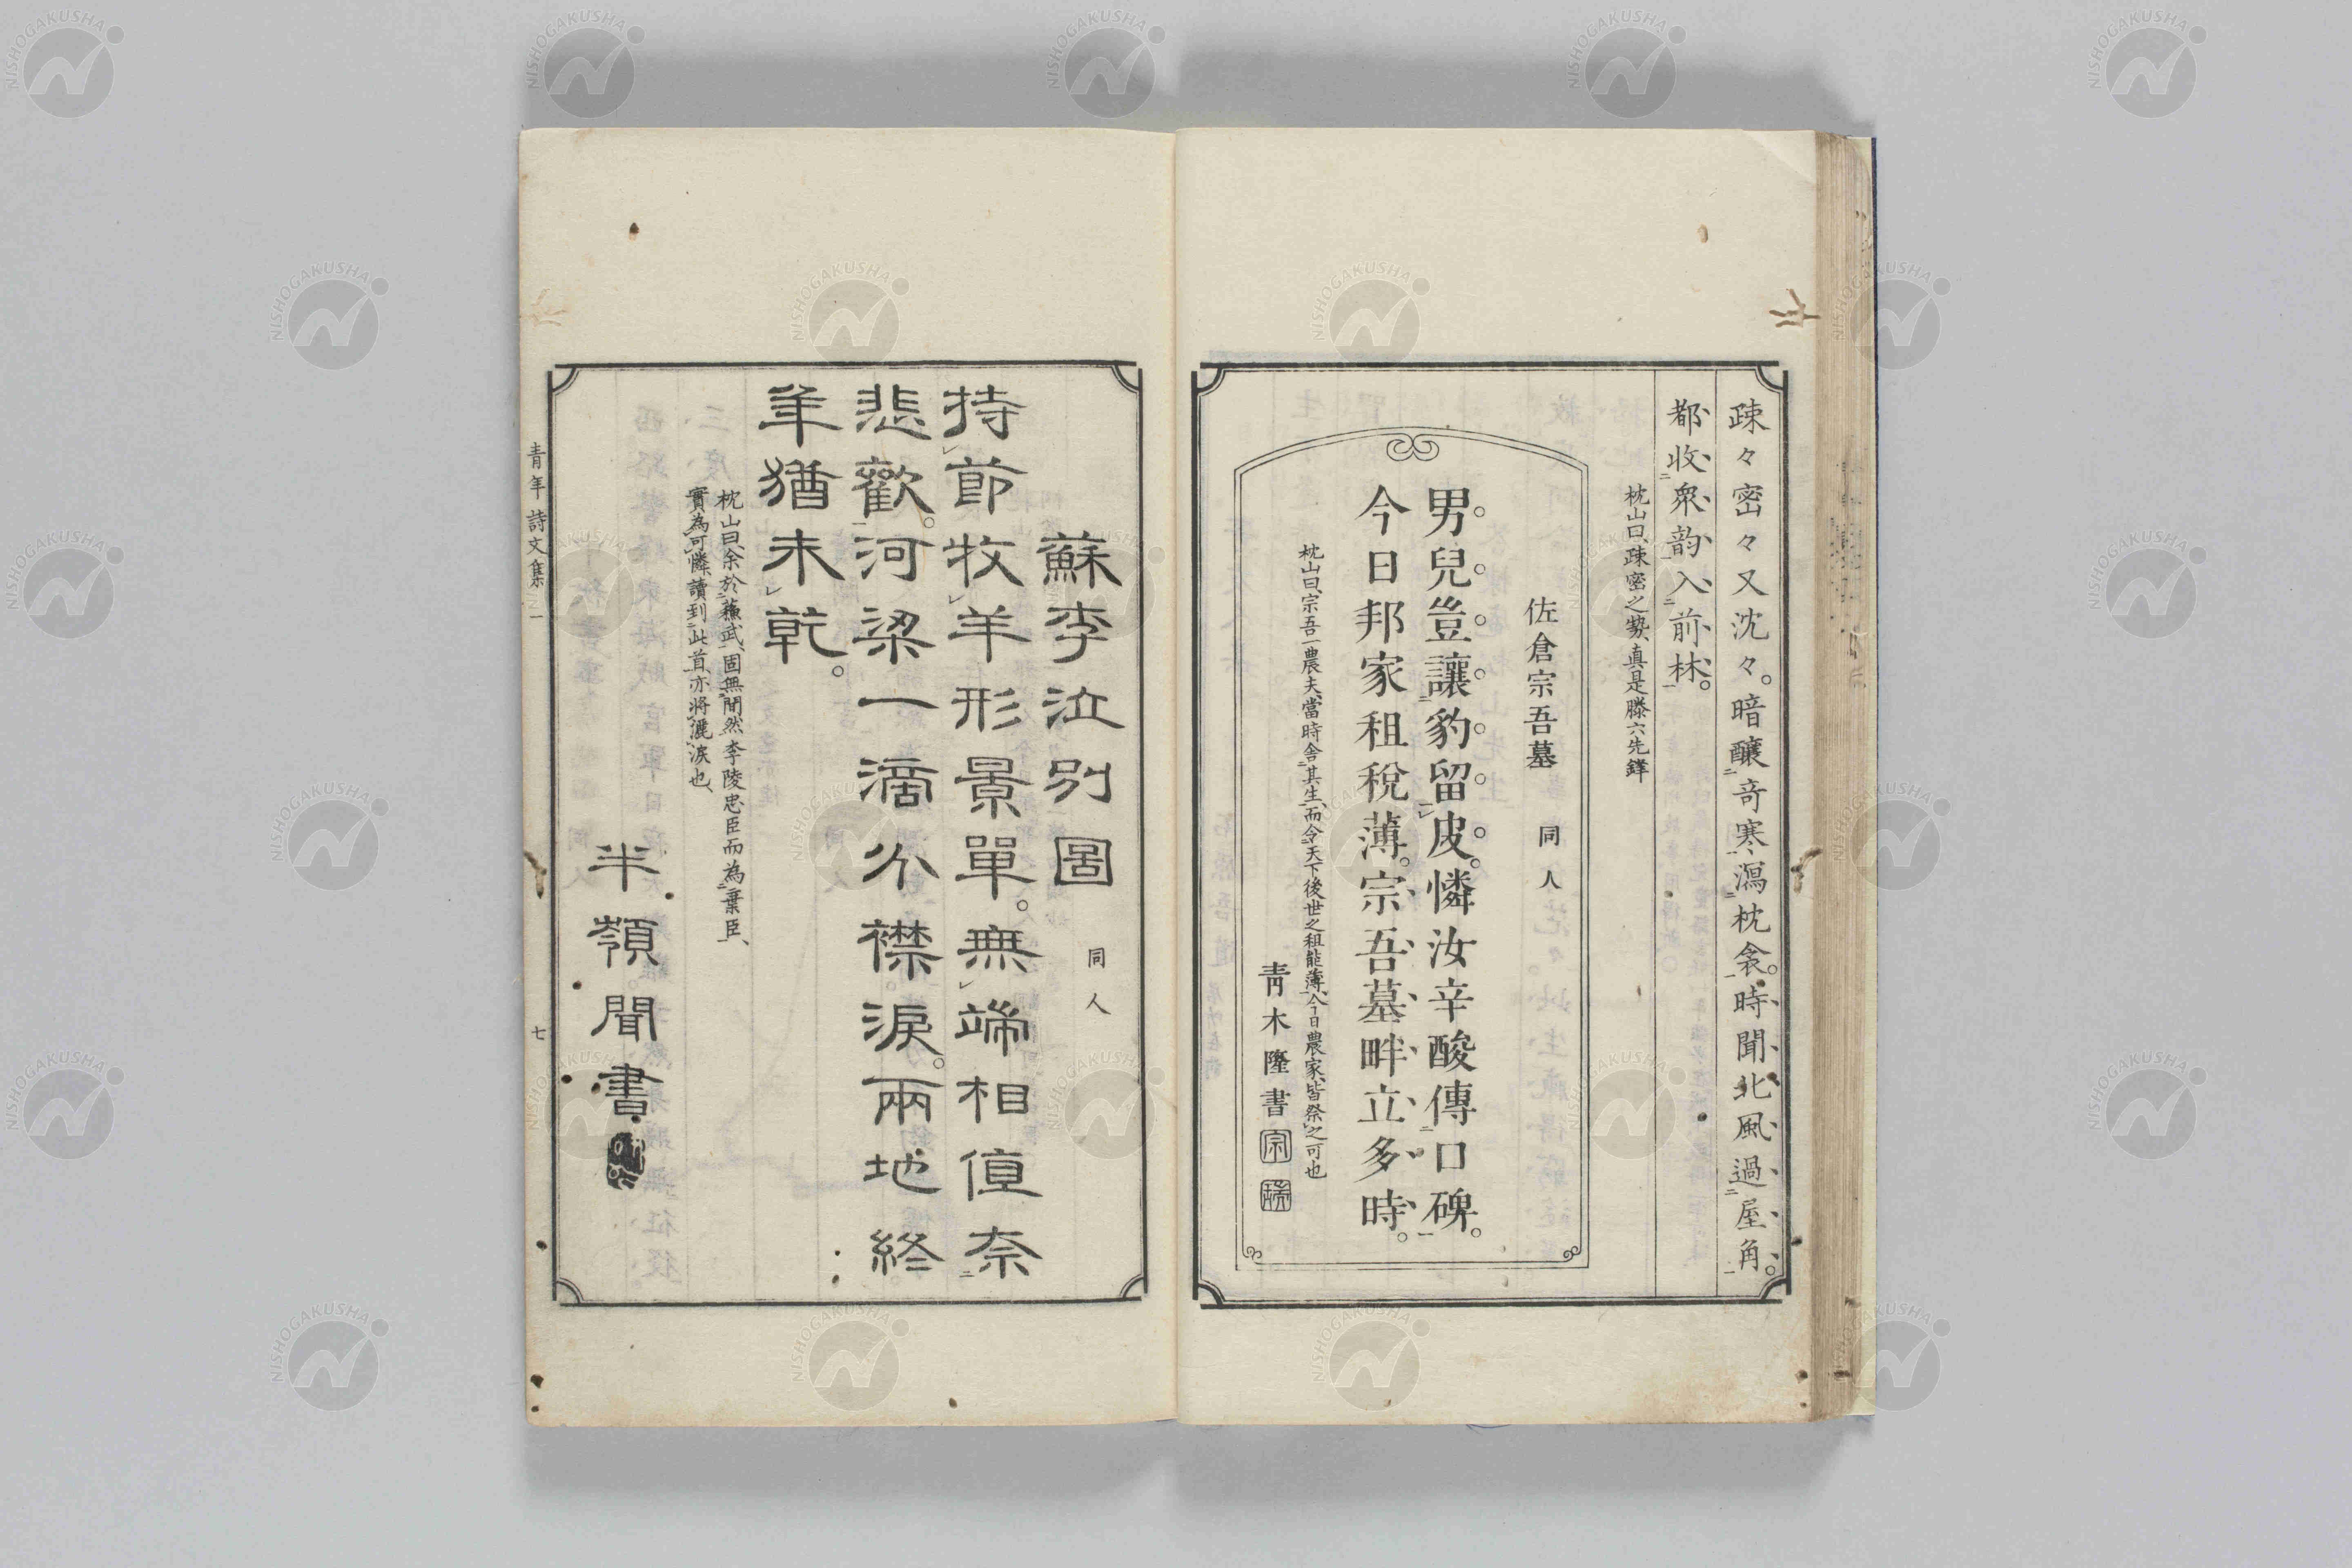 疎々密々又沈々。暗釀奇寒瀉枕衾。時聞北風過屋角。
都收衆韵入前林。
枕山曰、疎密之勢、真是滕六先鋒
佐倉宗吾墓　同人
男兒豈讓豹留皮。憐汝辛酸傳口碑。
今日邦家租稅薄。宗吾墓畔立多時。
枕山曰、宗吾一農夫、當時舍其生、而令天下後世之租能薄、今日農家、皆祭之可也
青木隆書
蘇李泣別圖　同人
持節牧羊形景單。無端相値奈
悲歡。河梁一滴分襟淚。兩地終
年猶未乾。
枕山曰、余於蘇武、固無間然、李陵忠臣而為棄臣、
實為可憐、讀到此首、亦將灑淚也、
半嶺聞書
青年詩文集一　七
NISHOGAKUSHA